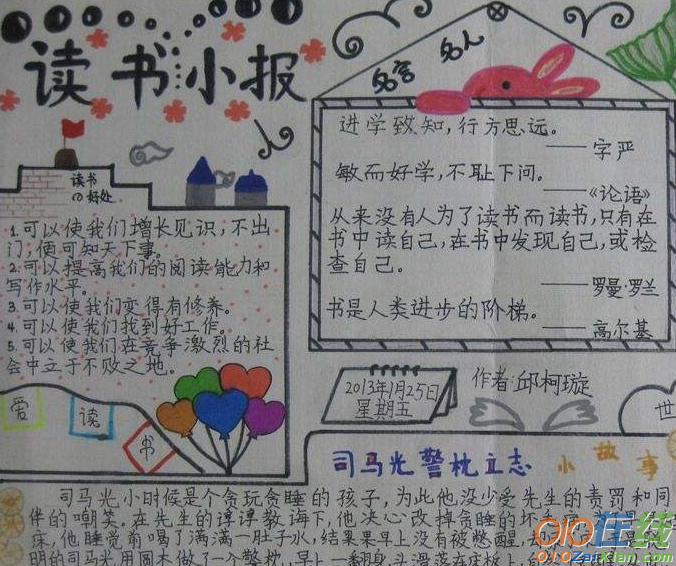 读书小报
名言 名人
进学致知，行方思远。
——字严
敏而好学，不耻下问。
——《论语》
从来没有人为了读书而读书，只有在
书中读自己，在书中发现自己，或检
查自己。
——罗曼·罗兰
书是人类进步的阶梯。
——高尔基
读书
的好处
1.可以使我们增长见识，不出
门，便可知天下事。
2.可以提高我们的阅读能力和
写作水平。
3.可以使我们变得有修养。
4.可以使我们找到好工作。
5.可以使我们在竞争激烈的社
会中立于不败之地。
爱
读
书
2013年1月25日
星期五
作者:邱柯璇
世
司马光警枕立志
小故事
司马光小时候是个贪玩贪睡的孩子，为此他没少受先生的责罚和同
伴的嘲笑。在先生的谆谆教诲下，他决心改掉贪睡的坏
床，他睡觉前喝了满满一肚子水，结果早上没有被憋醒，却
明的司马光用圆木做了一个警枕，早上一翻身，头滑落在床板上，
010在线
010ZaiXian.Com